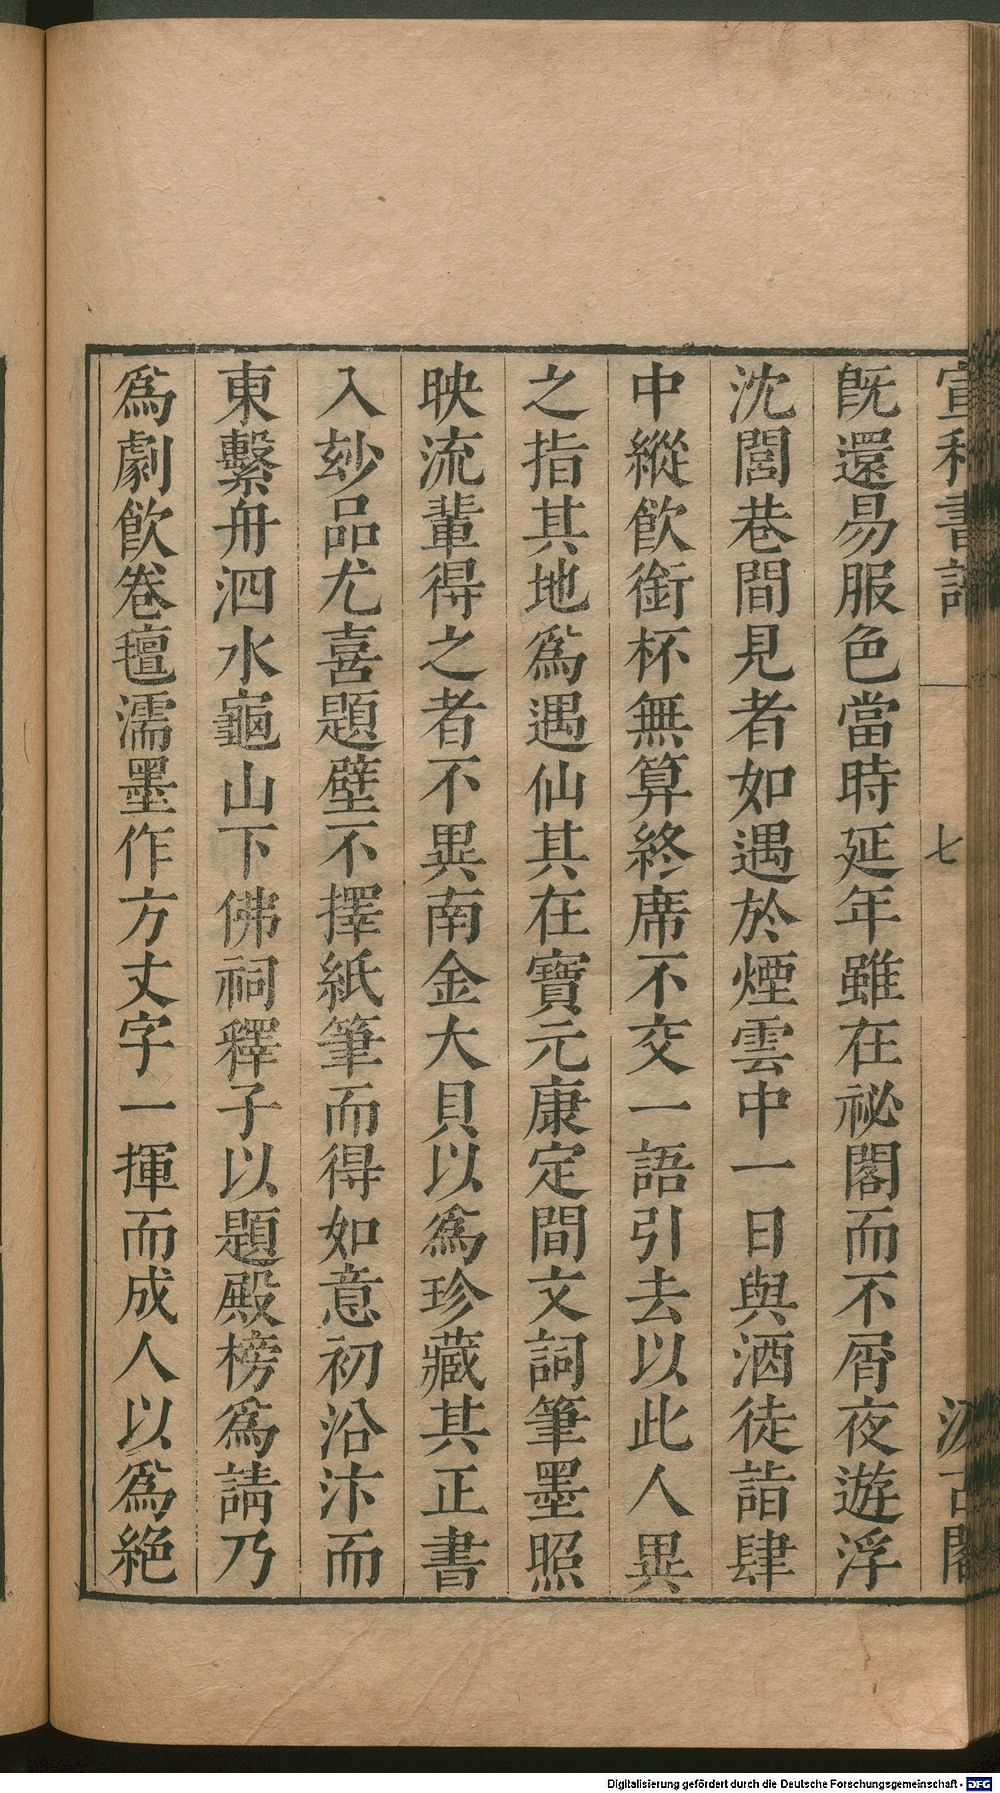 宣和書譜 七 汲古閣
旣還易服色當時延年雖在祕閣而不屑夜遊浮
沈閭巷間見者如遇於煙雲中一日與酒徒詣肆
中縱飮銜杯無算終席不交一語引去以此人異
之指其地爲遇仙其在寶元康定間文詞筆墨照
映流輩得之者不異南金大貝以爲珍藏其正書
入玅品尤喜題壁不擇紙筆而得如意初沿汴而
東繫舟泗水龜山下佛祠釋子以題殿榜爲請乃
爲劇飮卷氊濡墨作方丈字一揮而成人以爲絕
Digitalisierung gefördert durch die Deutsche Forschungsgemeinschaft - DFG